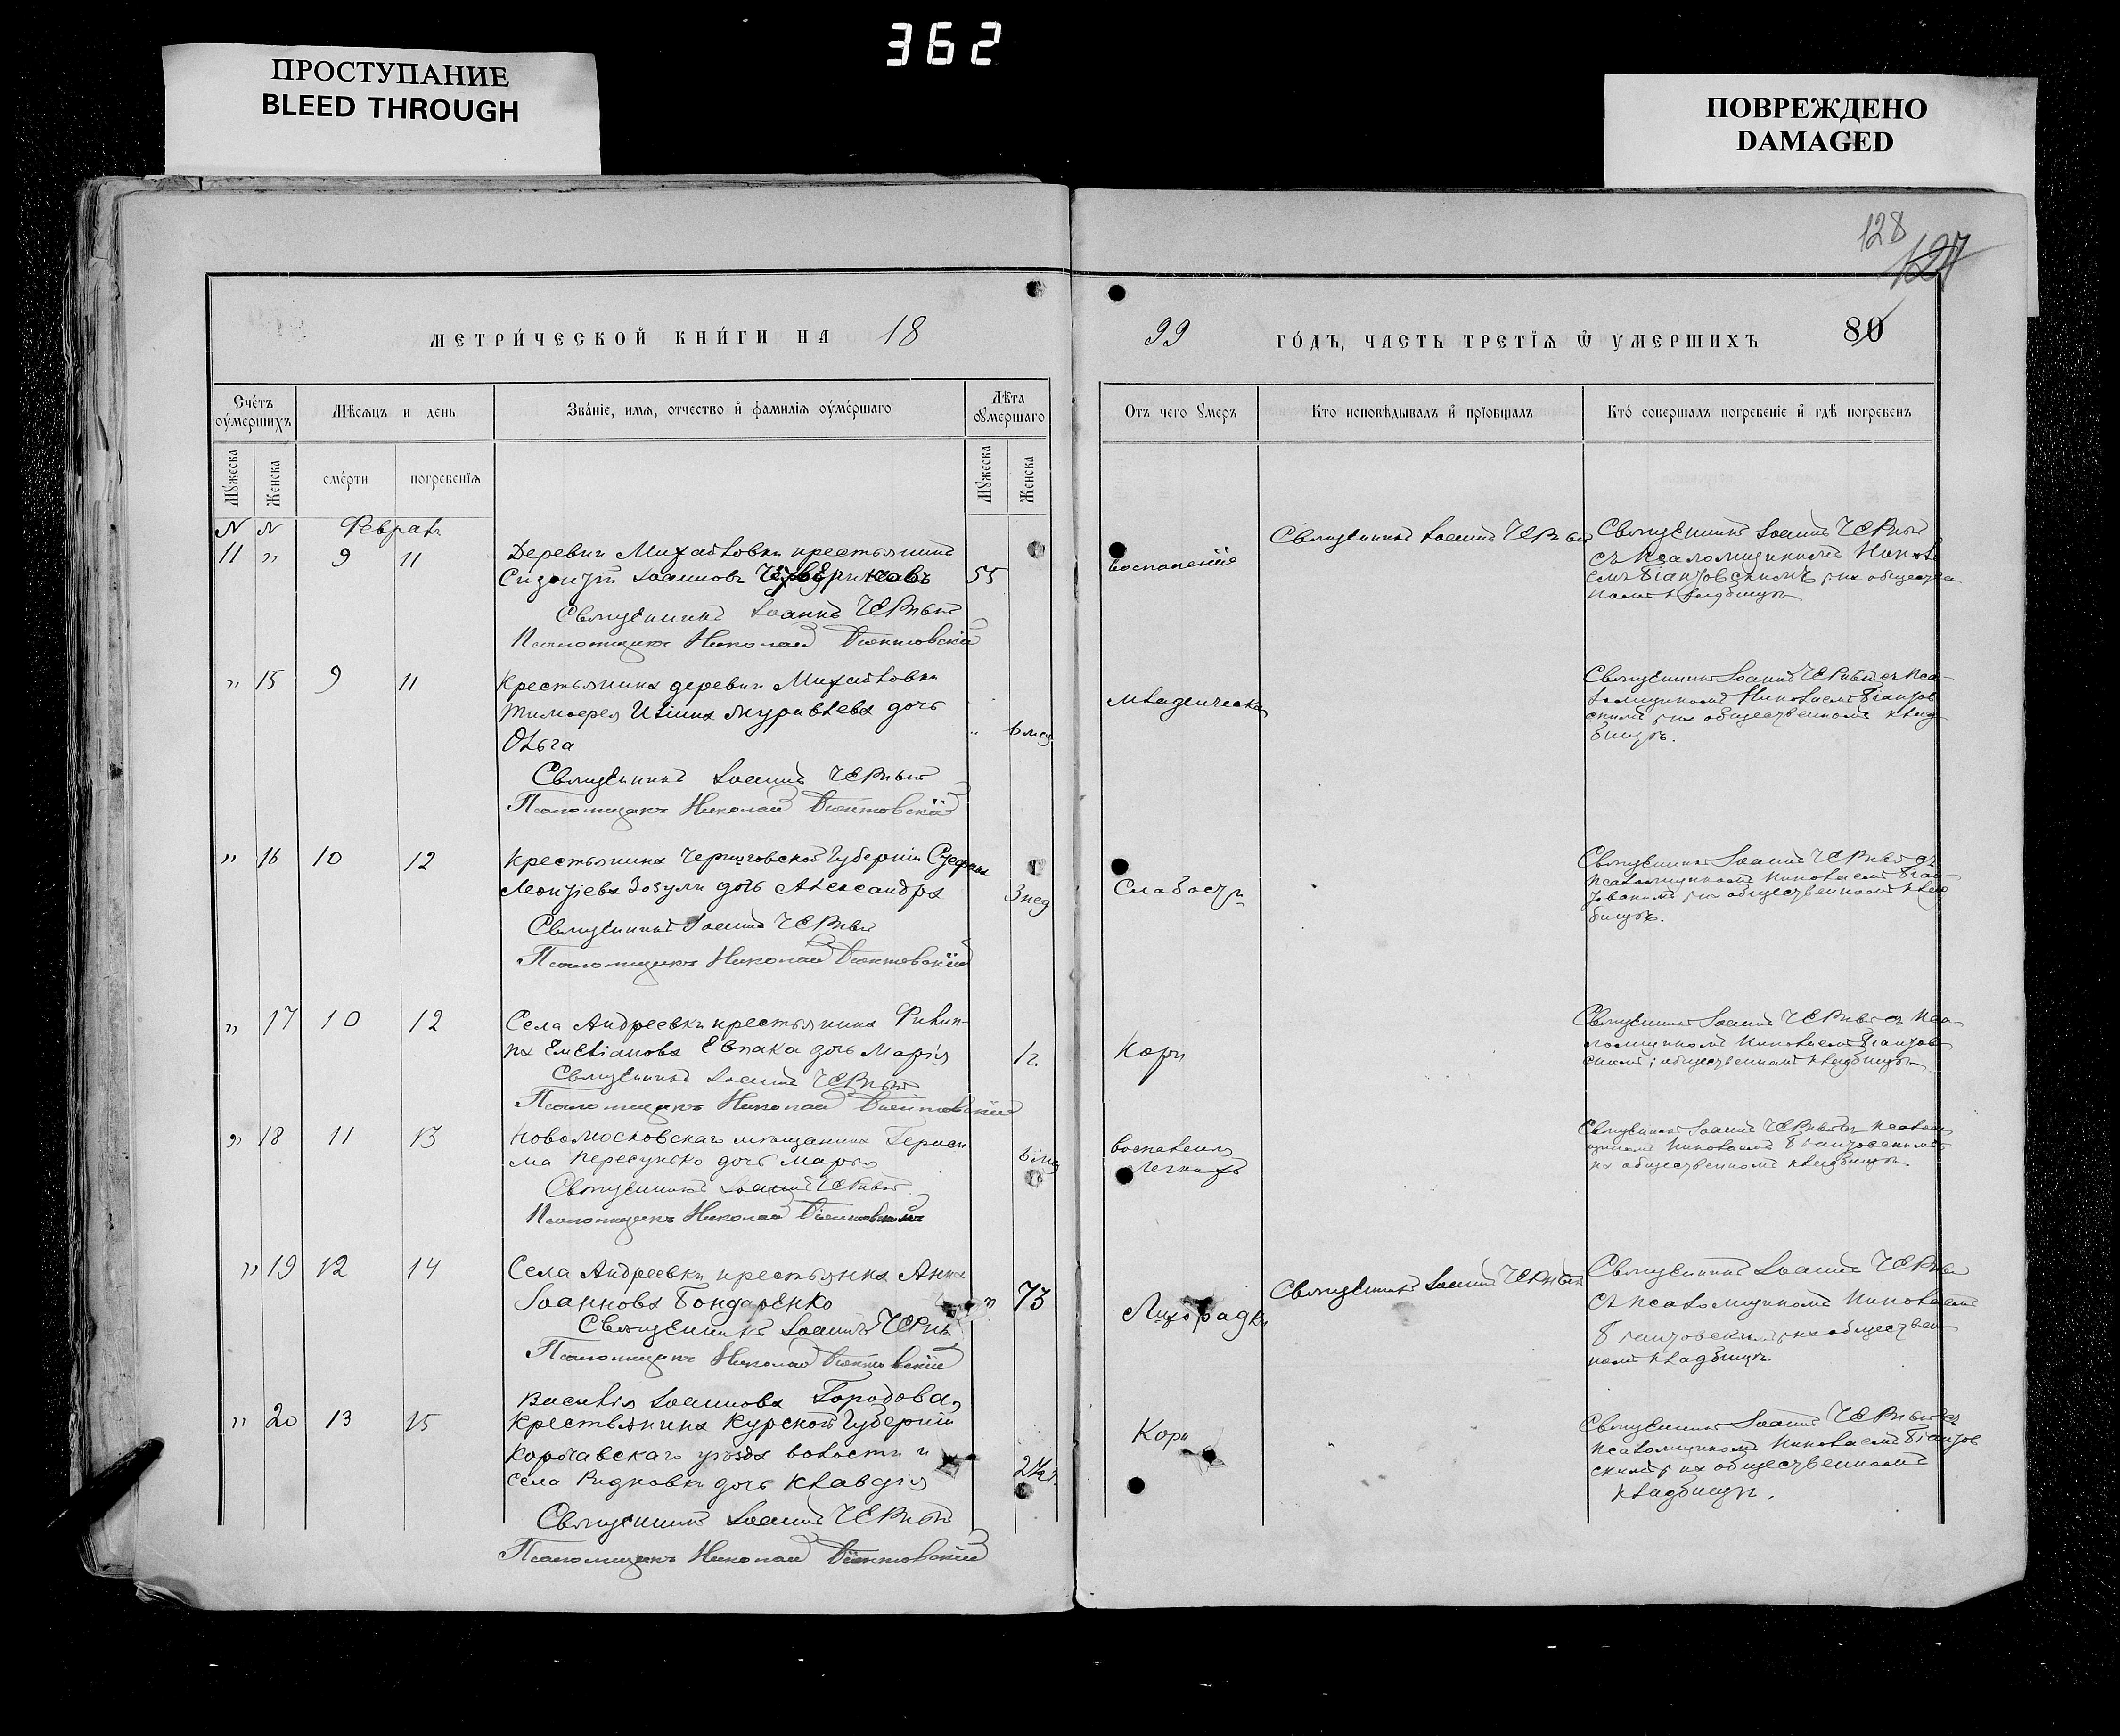 362
ПРОСТУПАНИЕ
BLEED THROUGH
ПОВРЕЖДЕНО
DAMAGED
128
127
МЕТРИ́ЧЕСКОЙ КНИ́ГИ НА 18
99 ГО́ДЪ, ЧАСТЬ ТРЕТІѦ Ѿ УМЕРШИХЪ 80
Сче́тъ оу҆ме́ршихъ
Мѣсѧцъ и день
Зва́нїе, имѧ, отчество и҆ фамилїѧ оу҆ме́ршаго
Лѣта ᲂумершаго
Отъ чего ᲂумеръ
Кто исповѣдывалъ и҆ прїобщалъ
Кто́ совершалъ погребенїе и҆ гдѣ погребенъ
Мꙋжеска
Женска
сме́рти
погребенїѧ
Мꙋжеска
Женска
N N Февраль
11 " 9 11
Деревни Михайловки крестьянинъ
Іоанновъ
55
Священникъ Іоаннъ Черный
Псаломщикъ Николай
воспаленіе
Священникъ Іоаннъ Черный
Священникъ Іоаннъ Черный
съ псаломщикомъ Никола
емъ на обществен
номъ кладбищѣ
" 15 9 11
Крестьянина деревни Михайловки
Тимофея дочь
Ольга
6 мсц
Священникъ Іоаннъ Черный
Псаломщикъ Николай
младенческая
Священникъ Іоаннъ Черный съ пса-
ломщикомъ Николаемъ
скимъ на общественномъ клад-
бищѣ.
" 16 10 12
Крестьянина Черниговской Губерніи Стефана
Леонтіева Зозули дочь Александра
3 нед
Священникъ Іоаннъ Черный
Псаломщикъ Николай
Слабости
Священникъ Іоаннъ Черный съ
псаломщикомъ Николаемъ
на общественномъ клад
бищѣ.
" 17 10 12
Села Андреевки крестьянина Филип-
па Емеліанова дочь Марія
1 г.
Священникъ Іоаннъ Черный
Псаломщикъ Николай
Кори
Священникъ Іоаннъ Черный съ пса-
ломщикомъ Николаемъ
скимъ общественномъ кладбищѣ
" 18 11 13
Новомосковскаго мѣщанина Гераси
ма Пересунько дочь Марія
Священникъ Іоаннъ Черный
Псаломщикъ Николай
воспаленія
легкихъ
Священникъ Іоаннъ Черный съ псалом
щикомъ Николаемъ
на общественномъ кладбищѣ.
" 19 12 14
Села Андреевки крестьянка Анна
Іоаннова Бондаренко
" 73
Священникъ Іоаннъ Черный
Псаломщикъ Николай
Лихорадки
Священникъ Іоаннъ Черный
Священникъ Іоаннъ Черный
съ псаломщикомъ Николаемъ
на обществен
номъ кладбищѣ.
Василія Іоаннова Городова,
" 20 13 15
Крестьянина Курской Губерніи
Корочавскаго уѣзда волости и
села дочь Клавдія
2 1/2 г.
Священникъ Іоаннъ Черный
Псаломщикъ Николай
Кори
Священникъ Іоаннъ Черный съ
псаломщикомъ Николаемъ
скимъ на общественномъ
кладбищѣ.